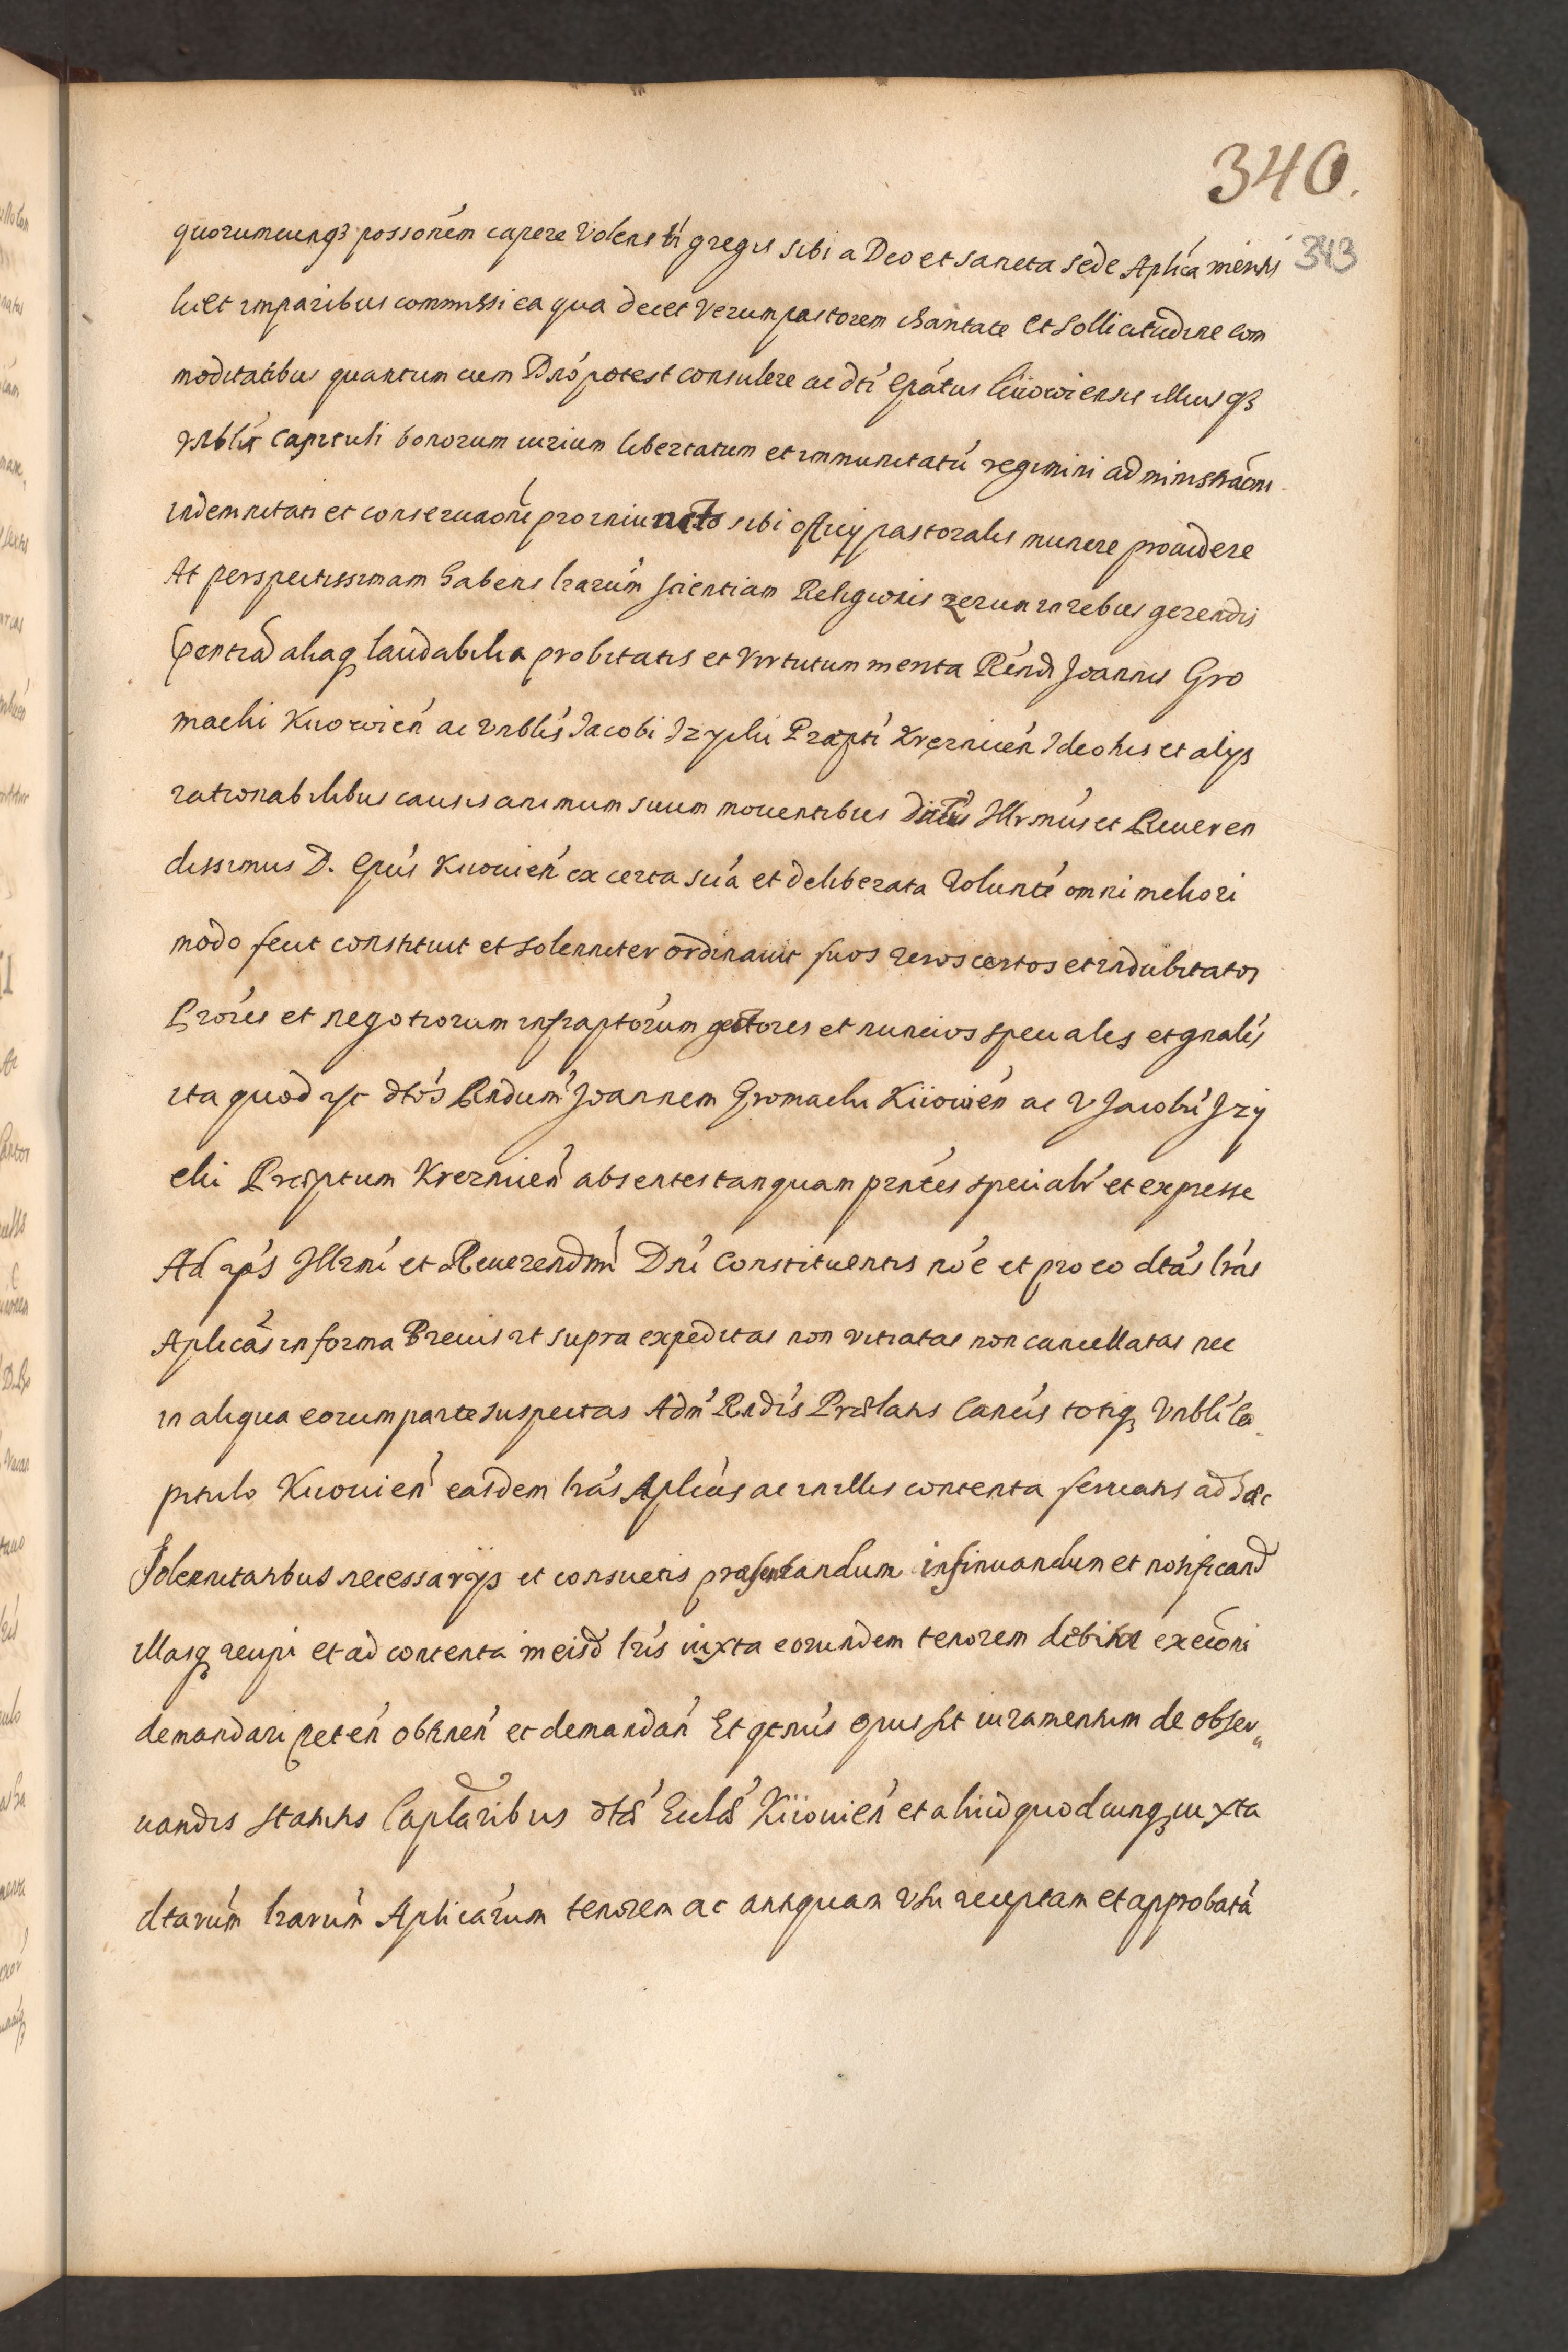 340.
343
quorumcunqз possoném capere Volens tñ gregis sibi a Deo et sancta sede Aplica meritis
licet imparibus commissi ea qua decet Verum pastorem charitate et Sollicitudine com
moditatibus quantum cum Dnó potest consulere ac dti Epátus Kiiowiensis illiusqз
Vnblis Capituli bonorum iurium libertatum et immunitatú regimini administraóni
indemnitati et conseruaóni pro iniuncto sibi officij pastoralis munere prouidere
At perspectissimam habens lrarúm scientiam Religionis rerum in rebus gerendis
aliaq laudabilia probitatis et Virtutum merita Réndi Joannis Gro
machi Kiiowien ac Vnblis Jacobi Jzychi Prapti Krzernicén Ideo his et alijs
rationabilibus causis animum suum mouentibus Dictus Illrmús et Reueren
dissimus D. Epús Kiiouién ex certa sciá et deliberata Volunté omni meliori
modo fecit constituit et solenniter ordinauit suos veros certos et indubitatos
Prores et negotiorum infraptórum gestores et nuncios speciales et gnales
ita quod dtós Rndum Joannem Gromachi Kiiowién ac V Jacobú Jzy
chi Praeptum Krzernicén absentes tanquam prntes specialr et expresse
Ad ips Illrmi et Reuerendmi Dni Constituentis noé et pro eo dtás lrás
Aplicás in forma Breuis ut supra expeditas non vitiatas non cancellatas nec
in aliqua eorum parte suspectas Adm Rndis Praelatis Cancis totiq Vnbli Ca
pitulo Kiiouién easdem lrás Aplicás ac in illis contenta seruatis ad hac
Solennitatibus necessarijs et consuetis praesentandum insinuandum et notificand
illasq recipi et ad contenta in eisd lris iuxta eorundem tenorem debitae execoni
demandari petén obtinén et demandán Et qtnús opus sit iuramentum de obser„
uandis statutis Caplaribus dtae Ecclae Kiiouién et aliud quodcunq iuxta
dtarúm lrarúm Aplicárum tenorem ac antiquam Vsu receptam et approbatá